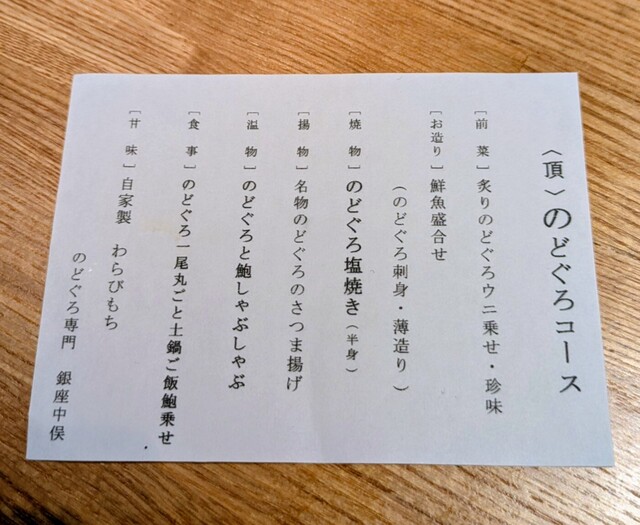 〈頂〉のどぐろコース
［前　菜］炙りのどぐろウニ乗せ・珍味
［お造り］鮮魚盛合せ
（のどぐろ刺身・薄造り）
［焼　物］のどぐろ塩焼き（半身）
［揚　物］名物のどぐろのさつま揚げ
［温　物］のどぐろと鮑しゃぶしゃぶ
［食　事］のどぐろ一尾丸ごと土鍋ご飯鮑乗せ
［甘　味］自家製　わらびもち
のどぐろ専門　銀座中俣